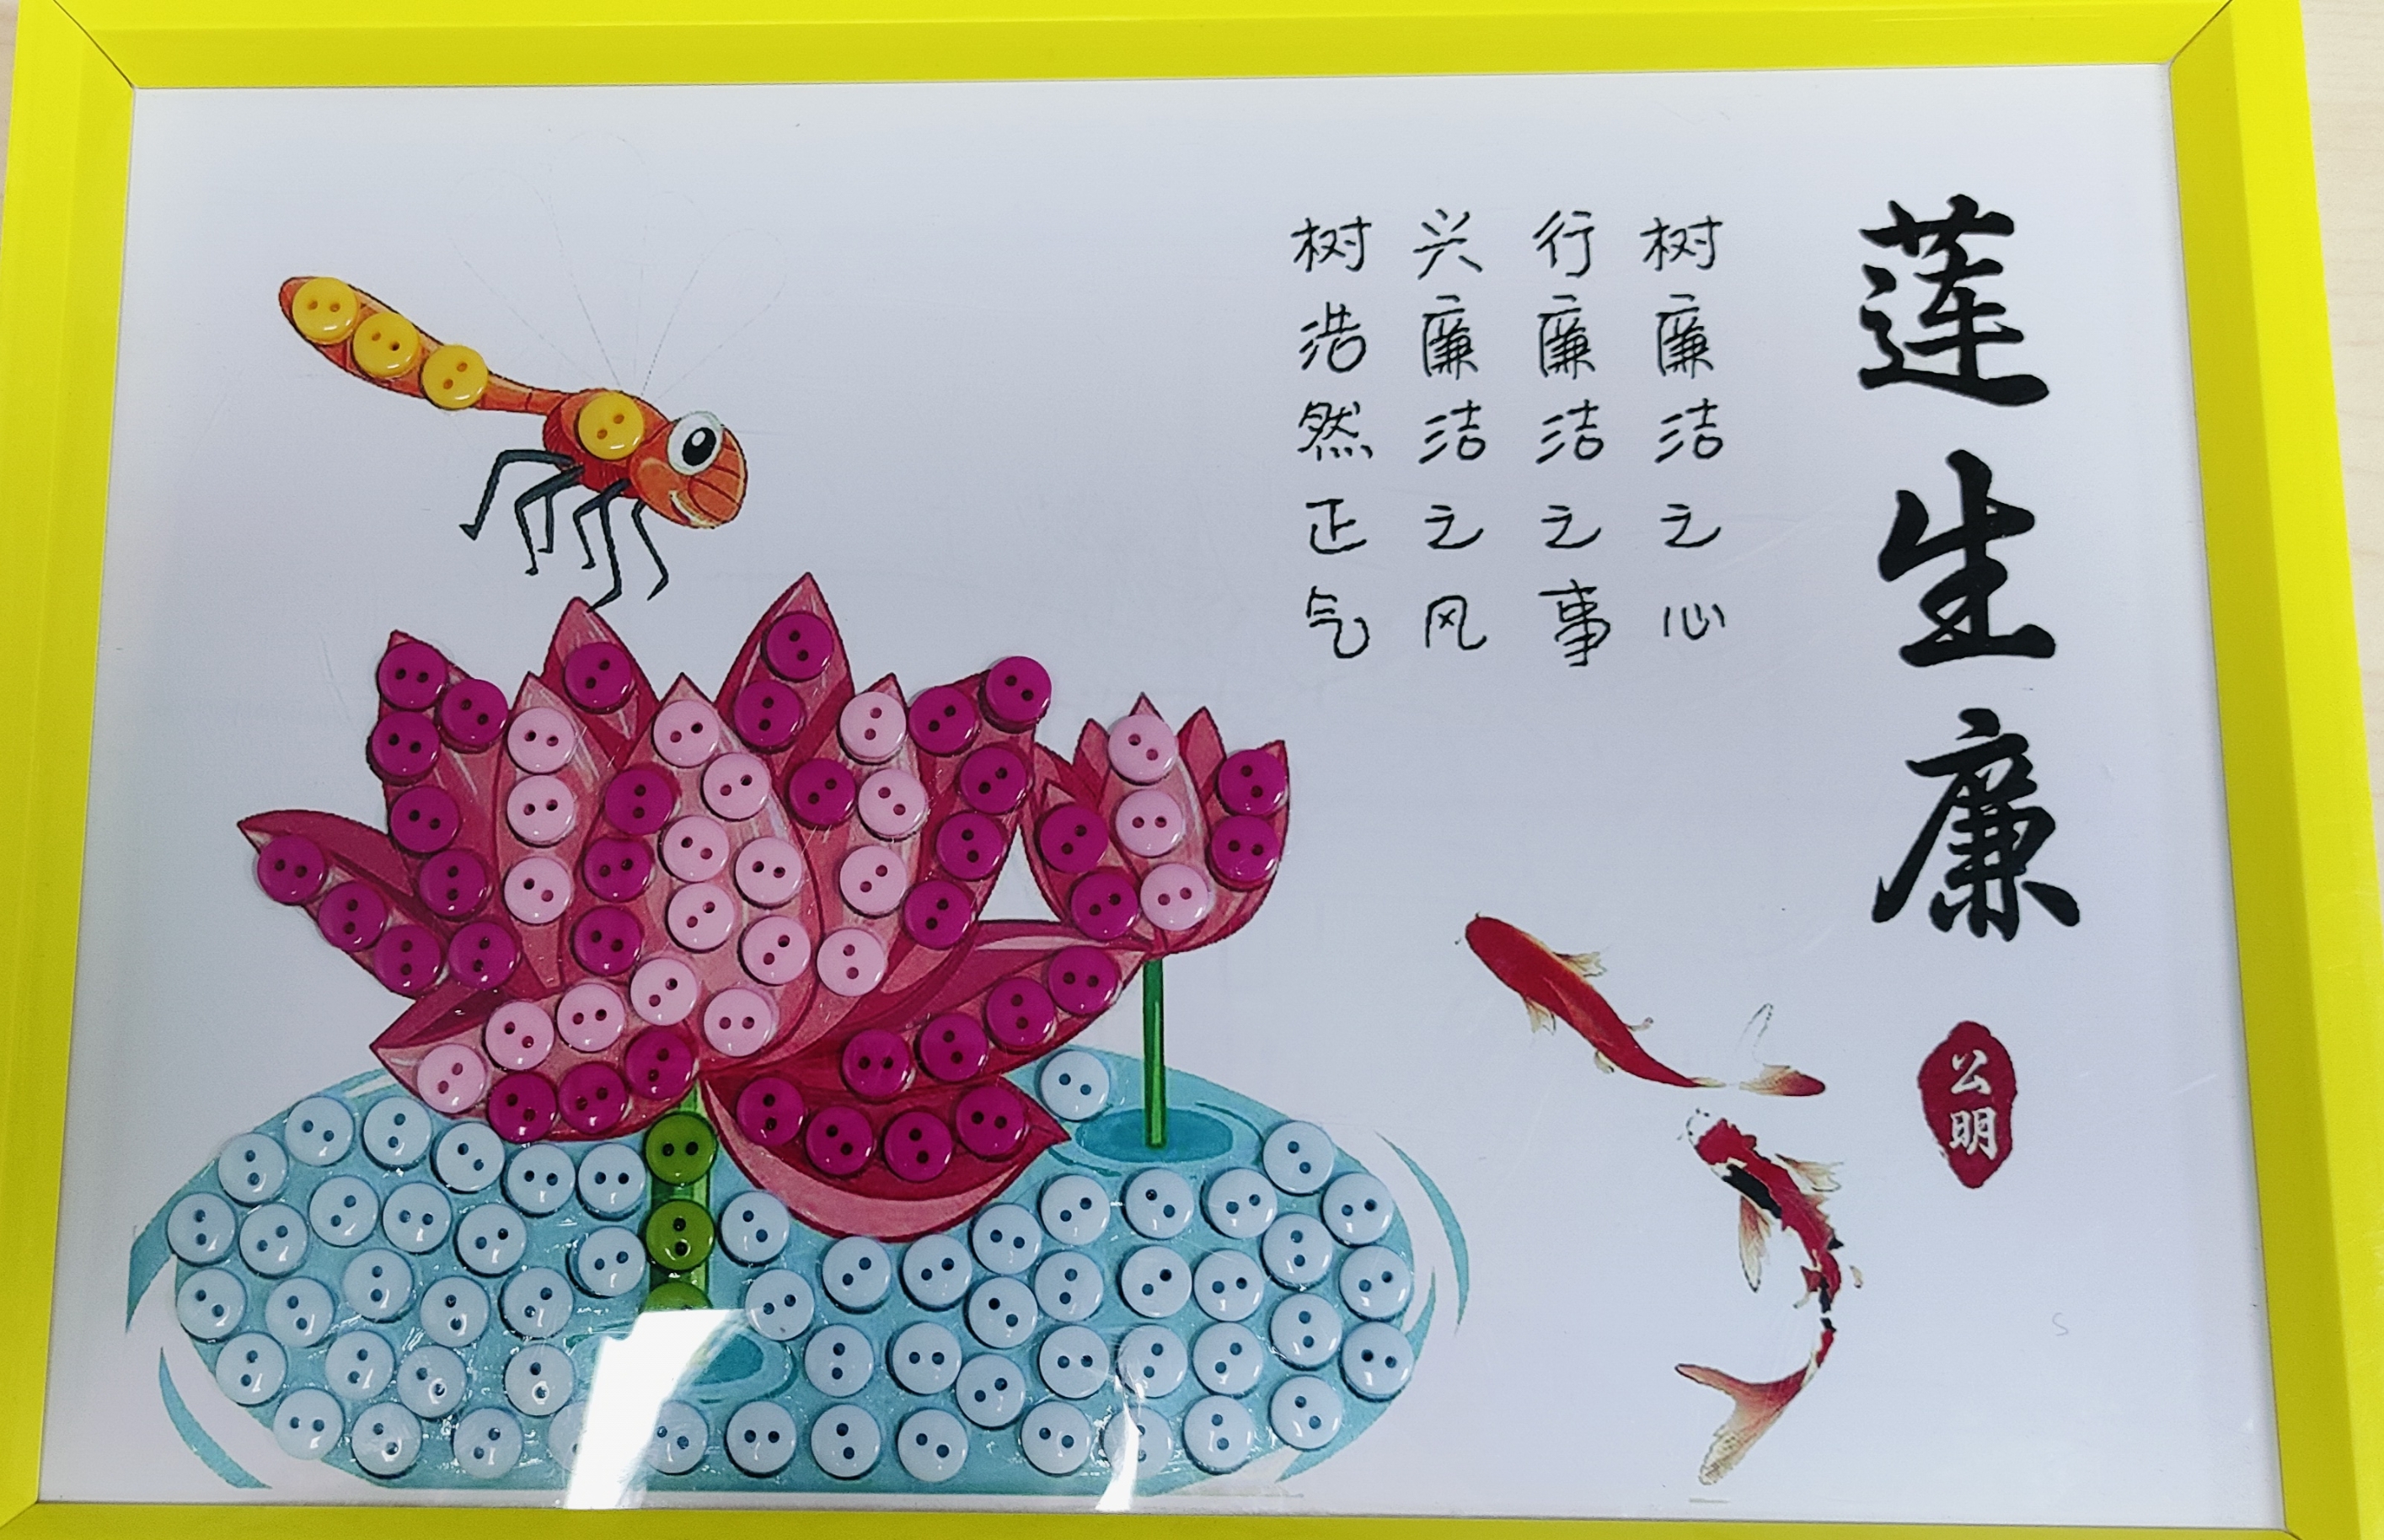 莲生廉
公明
树廉洁之心
行廉洁之事
兴廉洁之风
树浩然正气